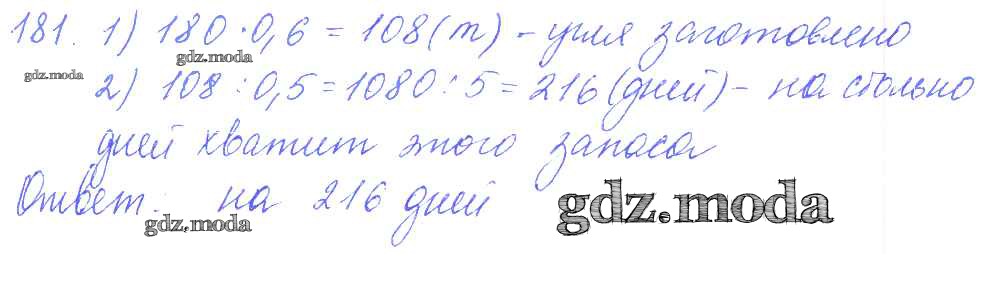 181. 1) 180 · 0,6 = 108 (т) - угля заготовлено
gdz.moda
gdz.moda
2) 108 : 0,5 = 1080 : 5 = 216 (дней) - на столько
дней хватит этого запаса
Ответ: на 216 дней
gdz.moda
gdz.moda